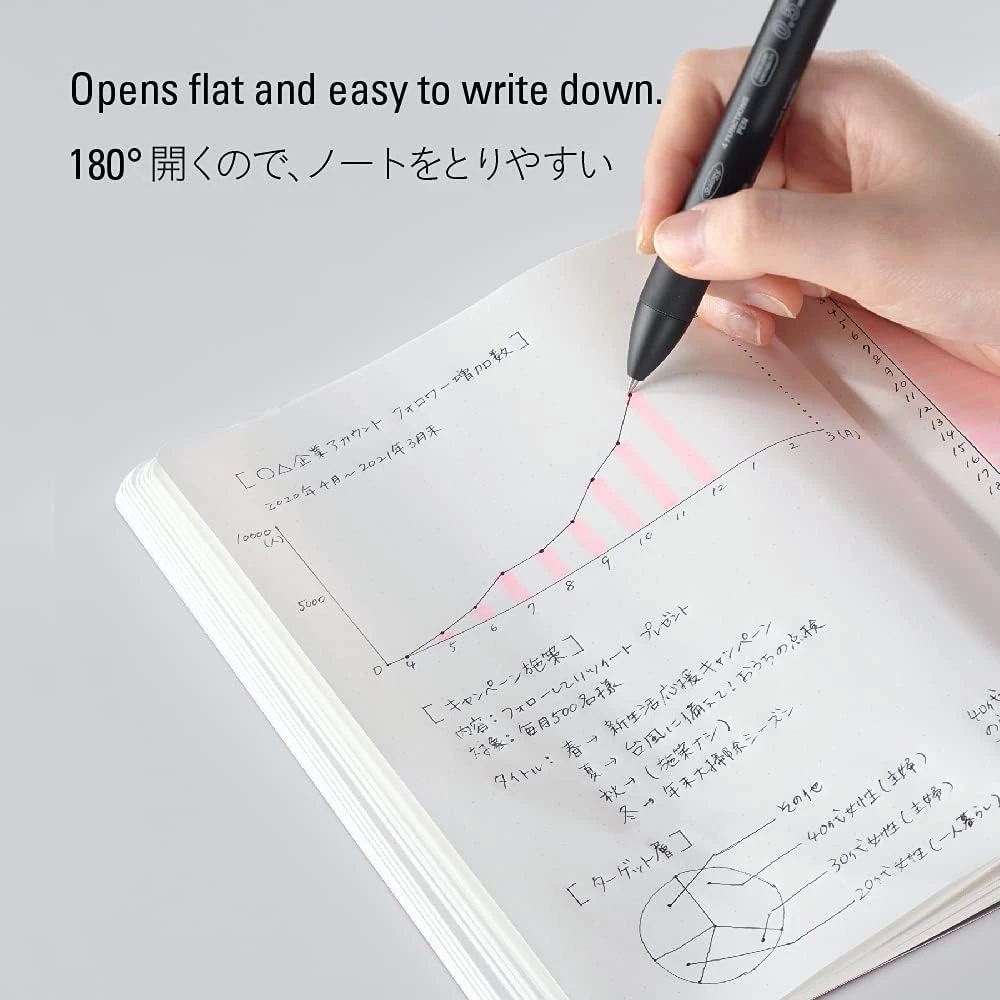 Opens flat and easy to write down.
180° 開くので、ノートをとりやすい
0.5
4 FUNCTIONS
PEN
[〇△企業アカウント フォロワー増加数]
2020年4月〜2021年3月末
10000
(人)
5000
0 4 5 6 7 8 9 10 11 12 1 2 3(月)
[キャンペーン施策]
内容：フォローしてリツイート プレゼント
対象：毎月500名様
タイトル：春→新生活応援キャンペーン
夏→台風に備えて！おうちの点検
秋→(施策ナシ)
冬→年末大掃除シーズン
[ターゲット層]
その他
40代女性(主婦)
30代女性(主婦)
20代女性(一人暮らし)
4
5
6
7
8
9
10
11
12
13
14
15
16
17
18
40代
の